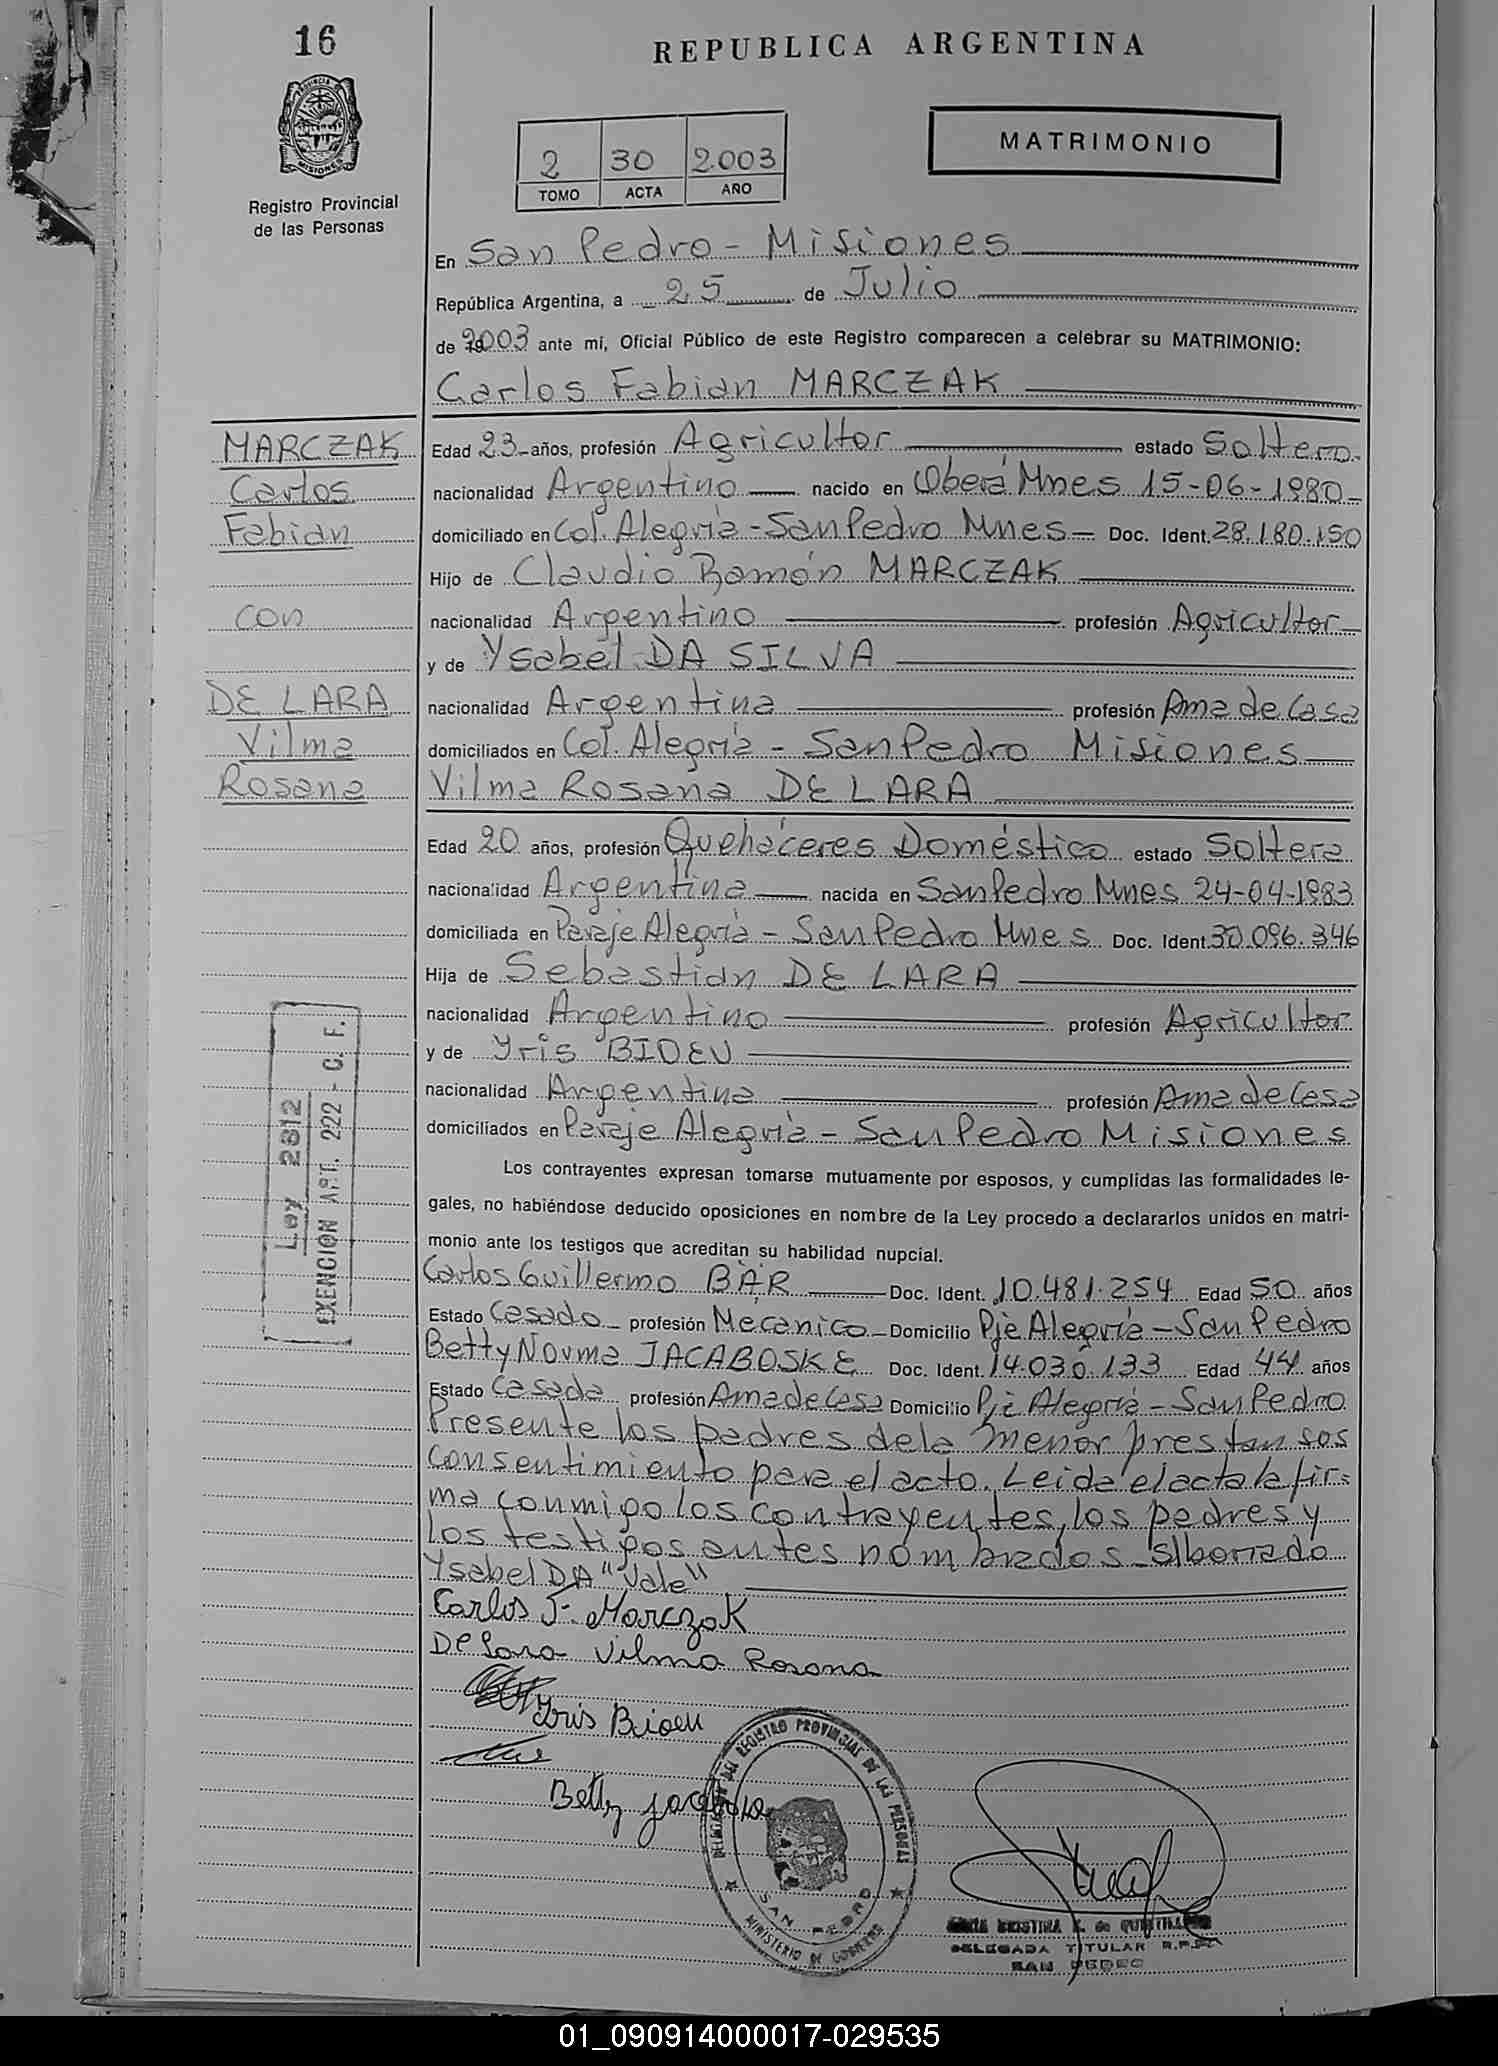 16
REPUBLICA ARGENTINA
PROVINCIA
MISIONES
Registro Provincial
de las Personas
2 30 2003
TOMO ACTA AÑO
MATRIMONIO
En San Pedro - Misiones
República Argentina, a 25 de Julio
de 2003 ante mí, Oficial Público de este Registro comparecen a celebrar su MATRIMONIO:
Carlos Fabian MARCZAK
MARCZAK
Carlos
Fabian
con
DE LARA
Vilma
Rosana
Edad 23 años, profesión Agricultor estado Soltero
nacionalidad Argentino nacido en Oberá Mnes 15-06-1980
domiciliado en Col. Alegría - San Pedro Mnes Doc. Ident. 28.180.150
Hijo de Claudio Ramón MARCZAK
nacionalidad Argentino profesión Agricultor
y de Ysabel DA SILVA
nacionalidad Argentina profesión Ama de Casa
domiciliados en Col. Alegría - San Pedro Misiones
Vilma Rosana DE LARA
Edad 20 años, profesión Quehaceres Doméstico estado Soltera
nacionalidad Argentina nacida en San Pedro Mnes 24-04-1983
domiciliada en Paraje Alegría - San Pedro Mnes Doc. Ident. 30.096.346
Hija de Sebastian DE LARA
nacionalidad Argentino profesión Agricultor
y de Yris BIDEU
nacionalidad Argentina profesión Ama de Casa
domiciliados en Paraje Alegría - San Pedro Misiones
Ley 2812
EXENCION ART. 222 - C. F.
Los contrayentes expresan tomarse mutuamente por esposos, y cumplidas las formalidades le-
gales, no habiéndose deducido oposiciones en nombre de la Ley procedo a declararlos unidos en matri-
monio ante los testigos que acreditan su habilidad nupcial.
Carlos Guillermo BÄR Doc. Ident. 10.481.254 Edad 50 años
Estado Casado profesión Mecanico Domicilio Pje Alegría - San Pedro
Betty Norma JACABOSKE Doc. Ident. 14.030.133 Edad 44 años
Estado Casada profesión Ama de Casa Domicilio Pje Alegría - San Pedro
Presente los padres dela menor prestan sos
consentimiento para el acto. Leida el acta la fir-
ma conmigo los contrayentes, los padres y
los testigos antes nombrados - S/borrado
Ysabel DA "Vale"
Carlos F. Marczak
De Lara Vilma Rosana
Yris Bideu
Betty
DEL REGISTRO PROVINCIAL DE LAS PERSONAS
SAN PEDRO
MINISTERIO DE GOBIERNO
DELEGADA TITULAR R.P.P.
SAN PEDRO
01_090914000017-029535